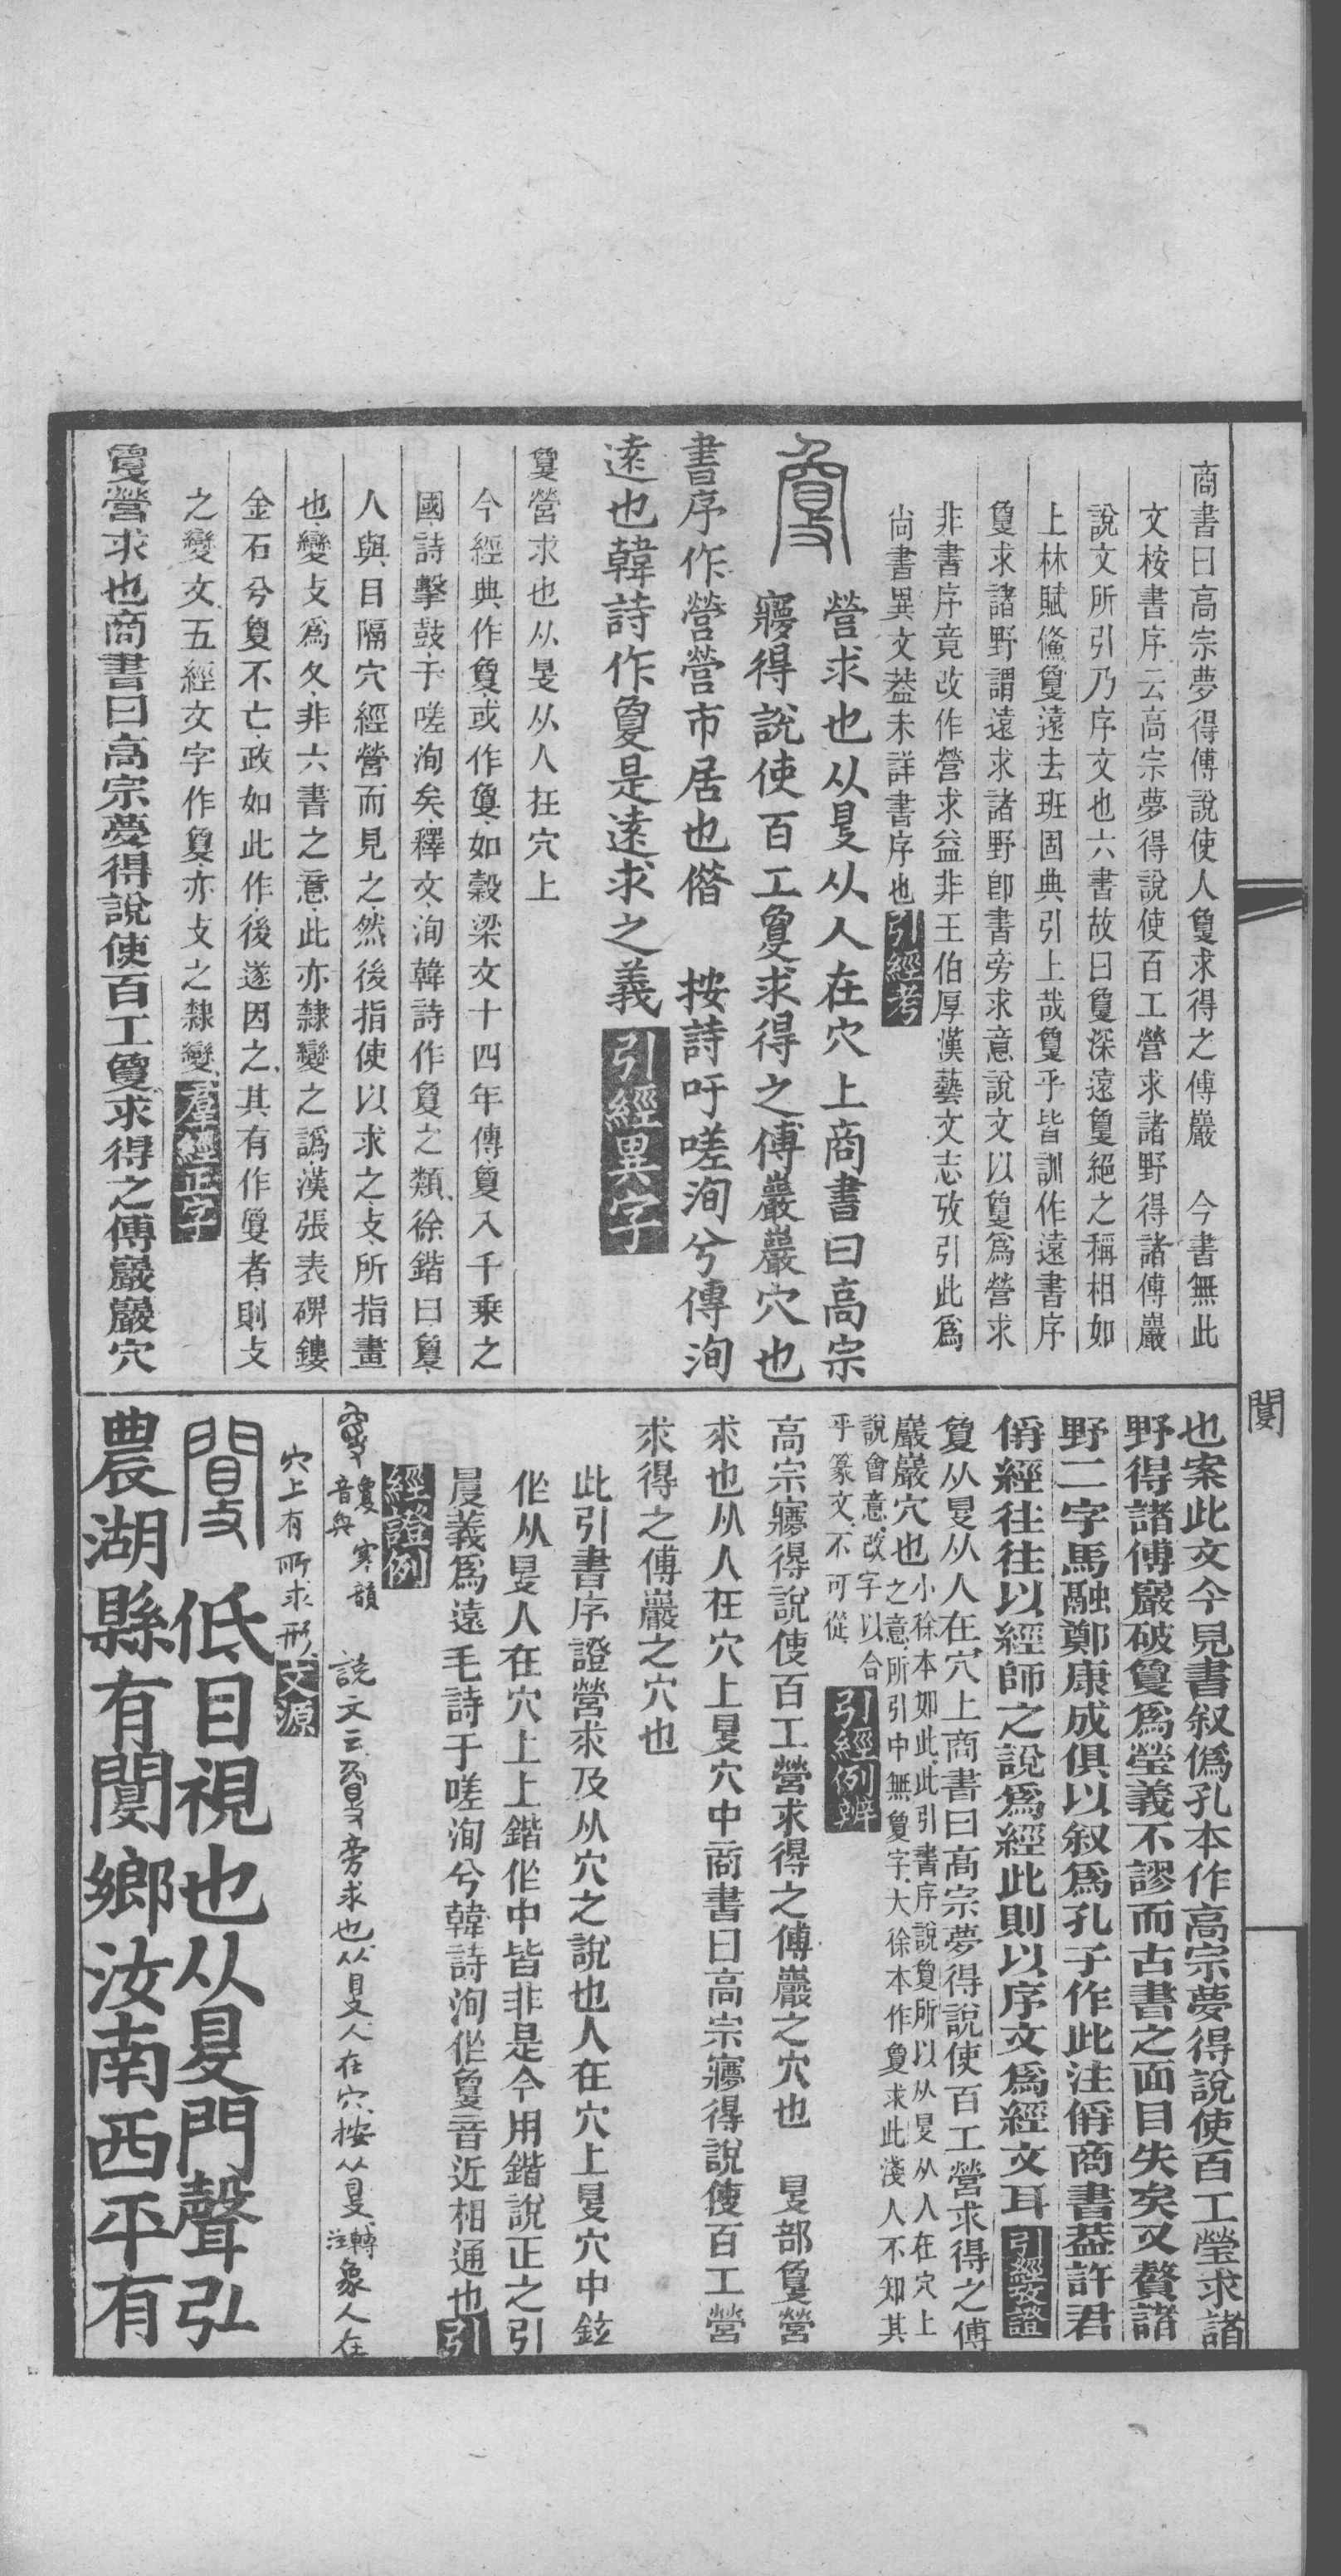 商書曰高宗夢得傅說使人敻求得之傅巖　今書無此
文桉書序云高宗夢得說使百工營求諸野得諸傅巖
說文所引乃序文也六書故曰敻深遠敻絕之稱相如
上林賦儵敻遠去班固典引上哉敻乎皆訓作遠書序
敻求諸野謂遠求諸野卽書旁求意說文以敻爲營求
非書序竟改作營求益非王伯厚漢藝文志攷引此爲
尚書異文葢未詳書序也引經考
敻　營求也从𥄎从人在穴上商書曰高宗
㝱得說使百工敻求得之傅巖巖穴也
書序作營營市居也僭　按詩吁嗟洵兮傳洵
遠也韓詩作敻是遠求之義引經異字
敻營求也从𥄎从人在穴上
今經典作敻或作敻如穀梁文十四年傳敻入千乘之
國詩擊鼓于嗟洵矣釋文洵韓詩作敻之類徐鍇曰敻
人與目隔穴經營而見之然後指使以求之攴所指畫
也變攴爲夂非六書之意此亦隸變之譌漢張表碑鏤
金石兮敻不亡政如此作後遂因之其有作敻者則攴
之變文五經文字作敻亦攴之隸變羣經正字
敻營求也商書曰高宗夢得說使百工敻求得之傅巖巖穴
也案此文今見書叙僞孔本作高宗夢得說使百工瑩求諸
野得諸傅巖破敻爲瑩義不謬而古書之面目失矣又贅諸
野二字馬融鄭康成俱以叙爲孔子作此注偁商書葢許君
偁經往往以經師之說爲經此則以序文爲經文耳引經攷證
敻从𥄎从人在穴上商書曰高宗夢得說使百工營求得之傅
巖巖穴也小徐本如此此引書序說敻所以从𥄎从人在穴上
之意所引中無敻字大徐本作敻求此淺人不知其
說會意改字以合
乎篆文不可從引經例辨
高宗㝱得說使百工營求得之傅巖之穴也　𥄎部敻營
求也从人在穴上𥄎穴中商書曰高宗㝱得說使百工營
求得之傅巖之穴也
此引書序證營求及从穴之說也人在穴上𥄎穴中鉉
作从𥄎人在穴上上鍇作中皆非是今用鍇說正之引
𥄎義爲遠毛詩于嗟洵兮韓詩洵作敻音近相通也引
經證例
敻音與寒韻　說文云敻旁求也从𥄎人在穴按从𥄎轉注象人在
穴上有所求形文源
䦧　低目視也从𥄎門聲弘
農湖縣有閿鄉汝南西平有
閿